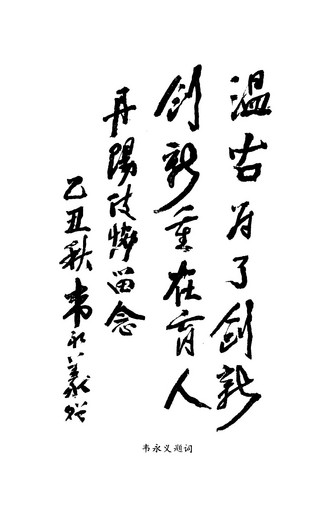 温古为了创新
创新重在育人
丹阳技校留念
乙丑秋韦永义题
韦永义题词